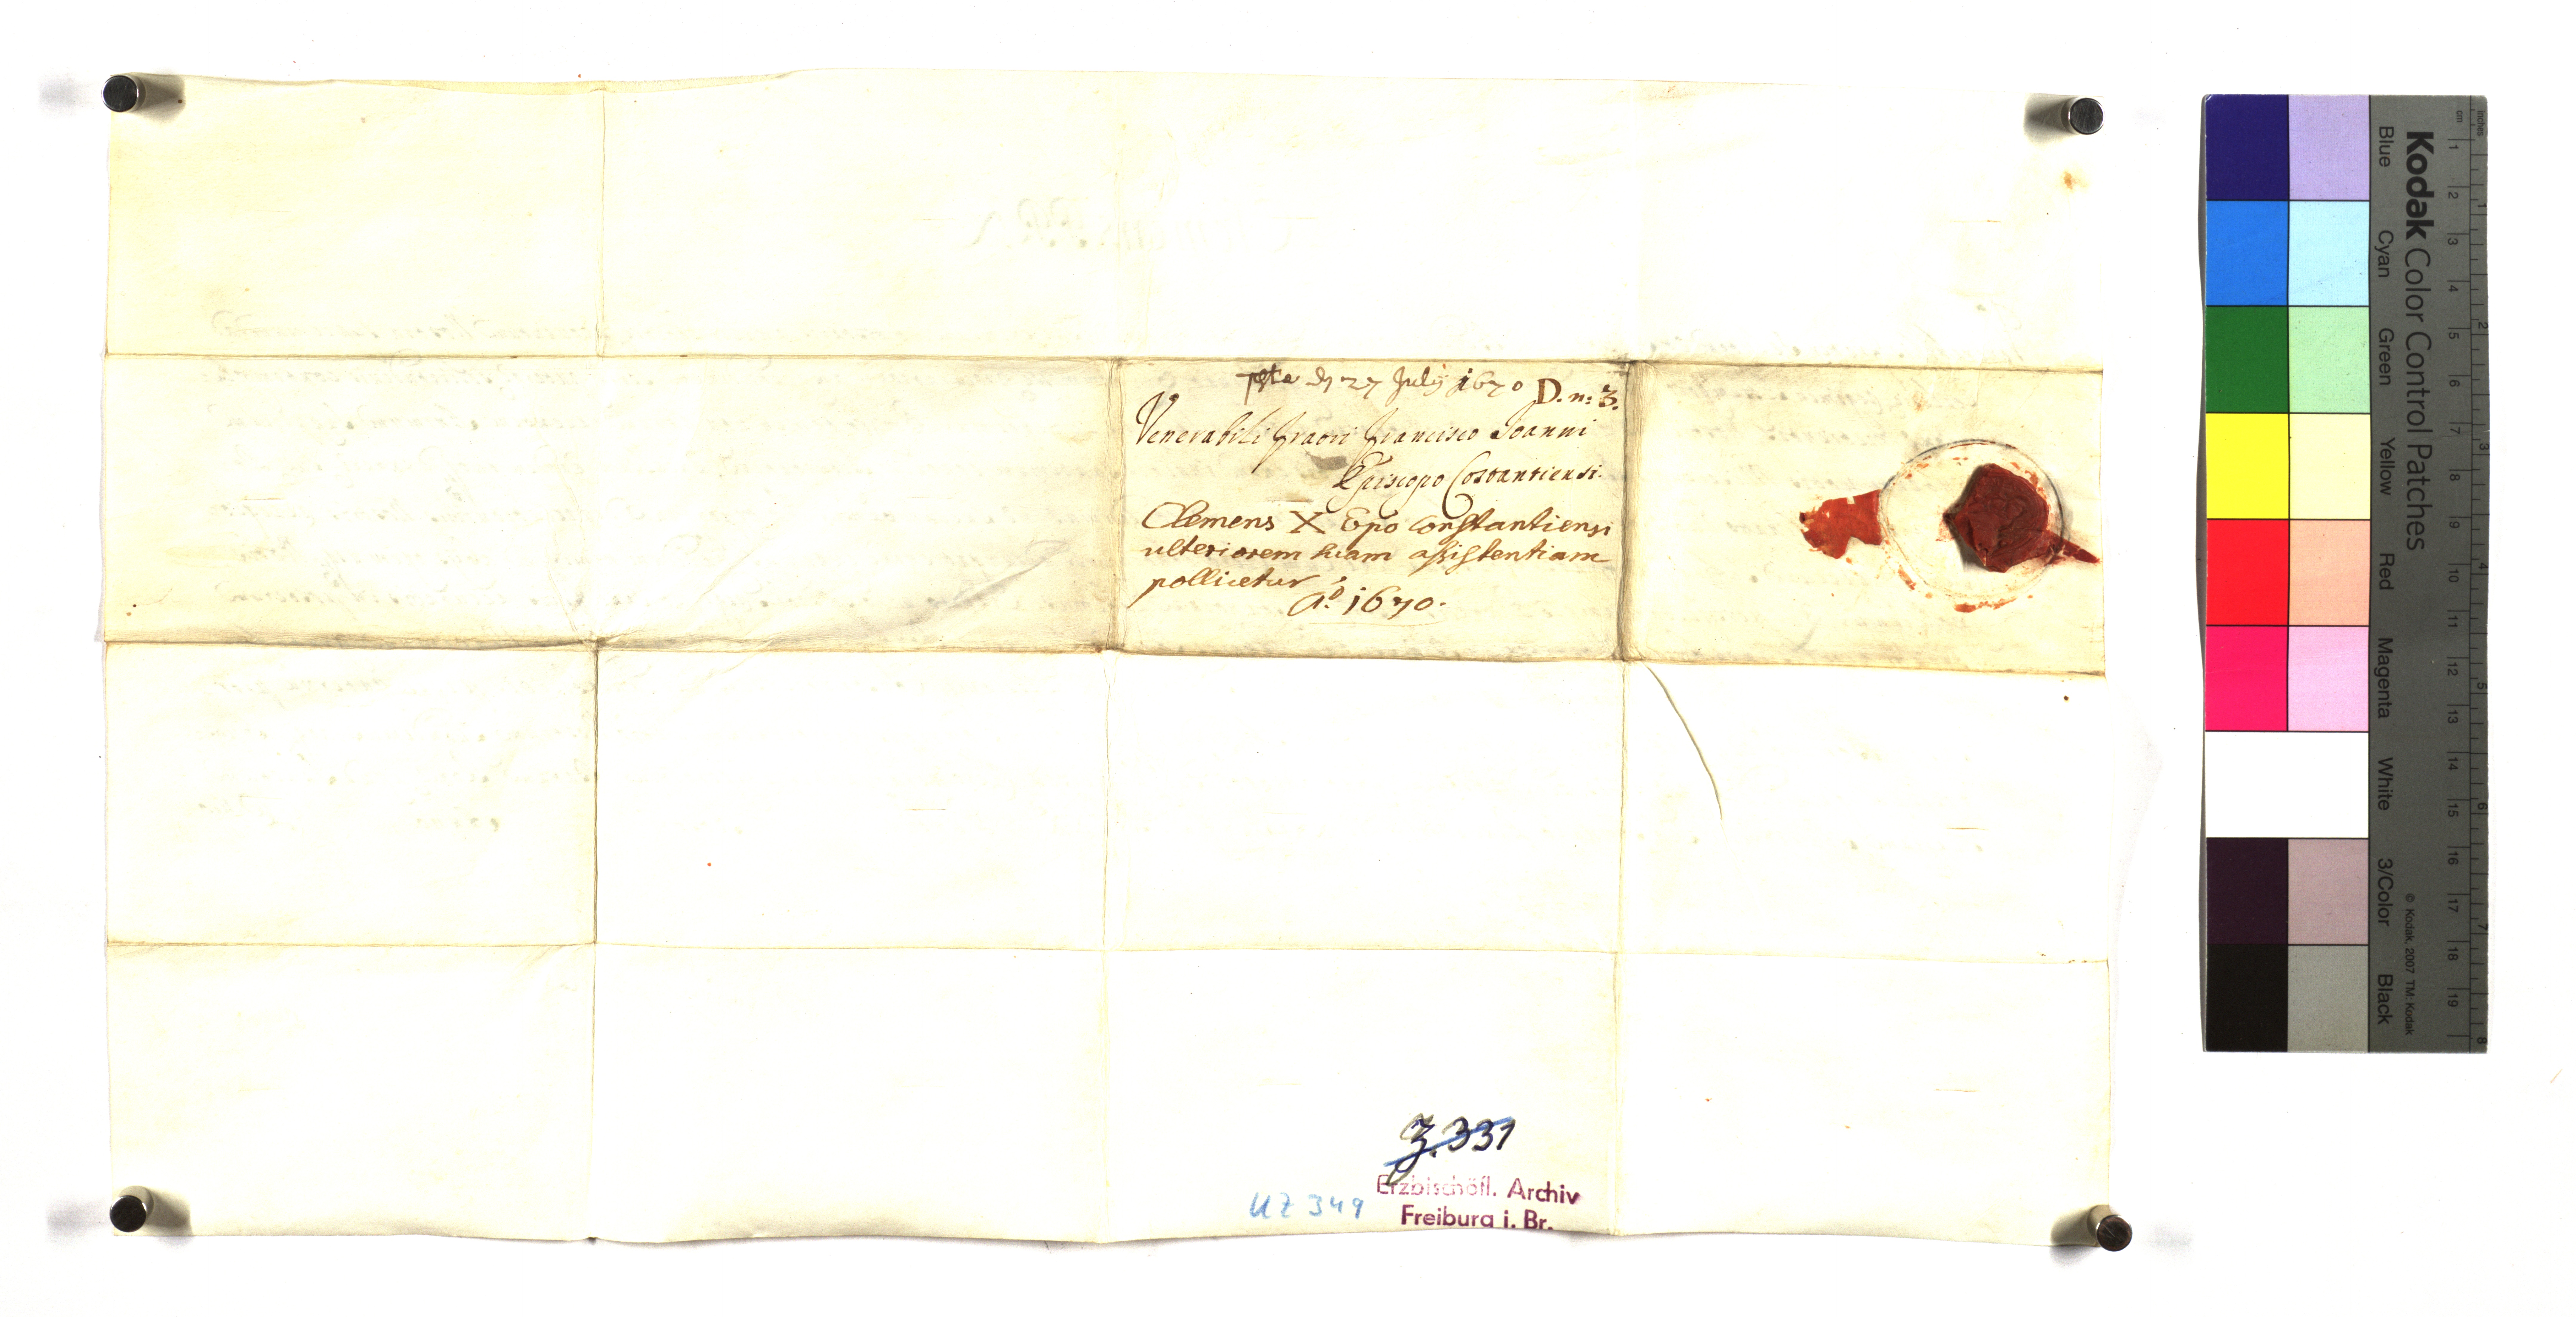 27 July 1670 D. n: 3.
Venerabili fratri Francisco Joanni
Episcopo Constantiensi.
Clemens X Epo Constantiensi
ulteriorem suam assistentiam
pollicetur
Aº. 1670.
Z. 331
Erzbischöfl. Archiv
UZ 349
Freiburg i. Br.
Kodak Color Control Patches
Blue Cyan Green Yellow Red Magenta White 3/Color Black
© Kodak, 2007 TM: Kodak
cm 1 2 3 4 5 6 7 8 9 10 11 12 13 14 15 16 17 18 19
inches 1 2 3 4 5 6 7 8